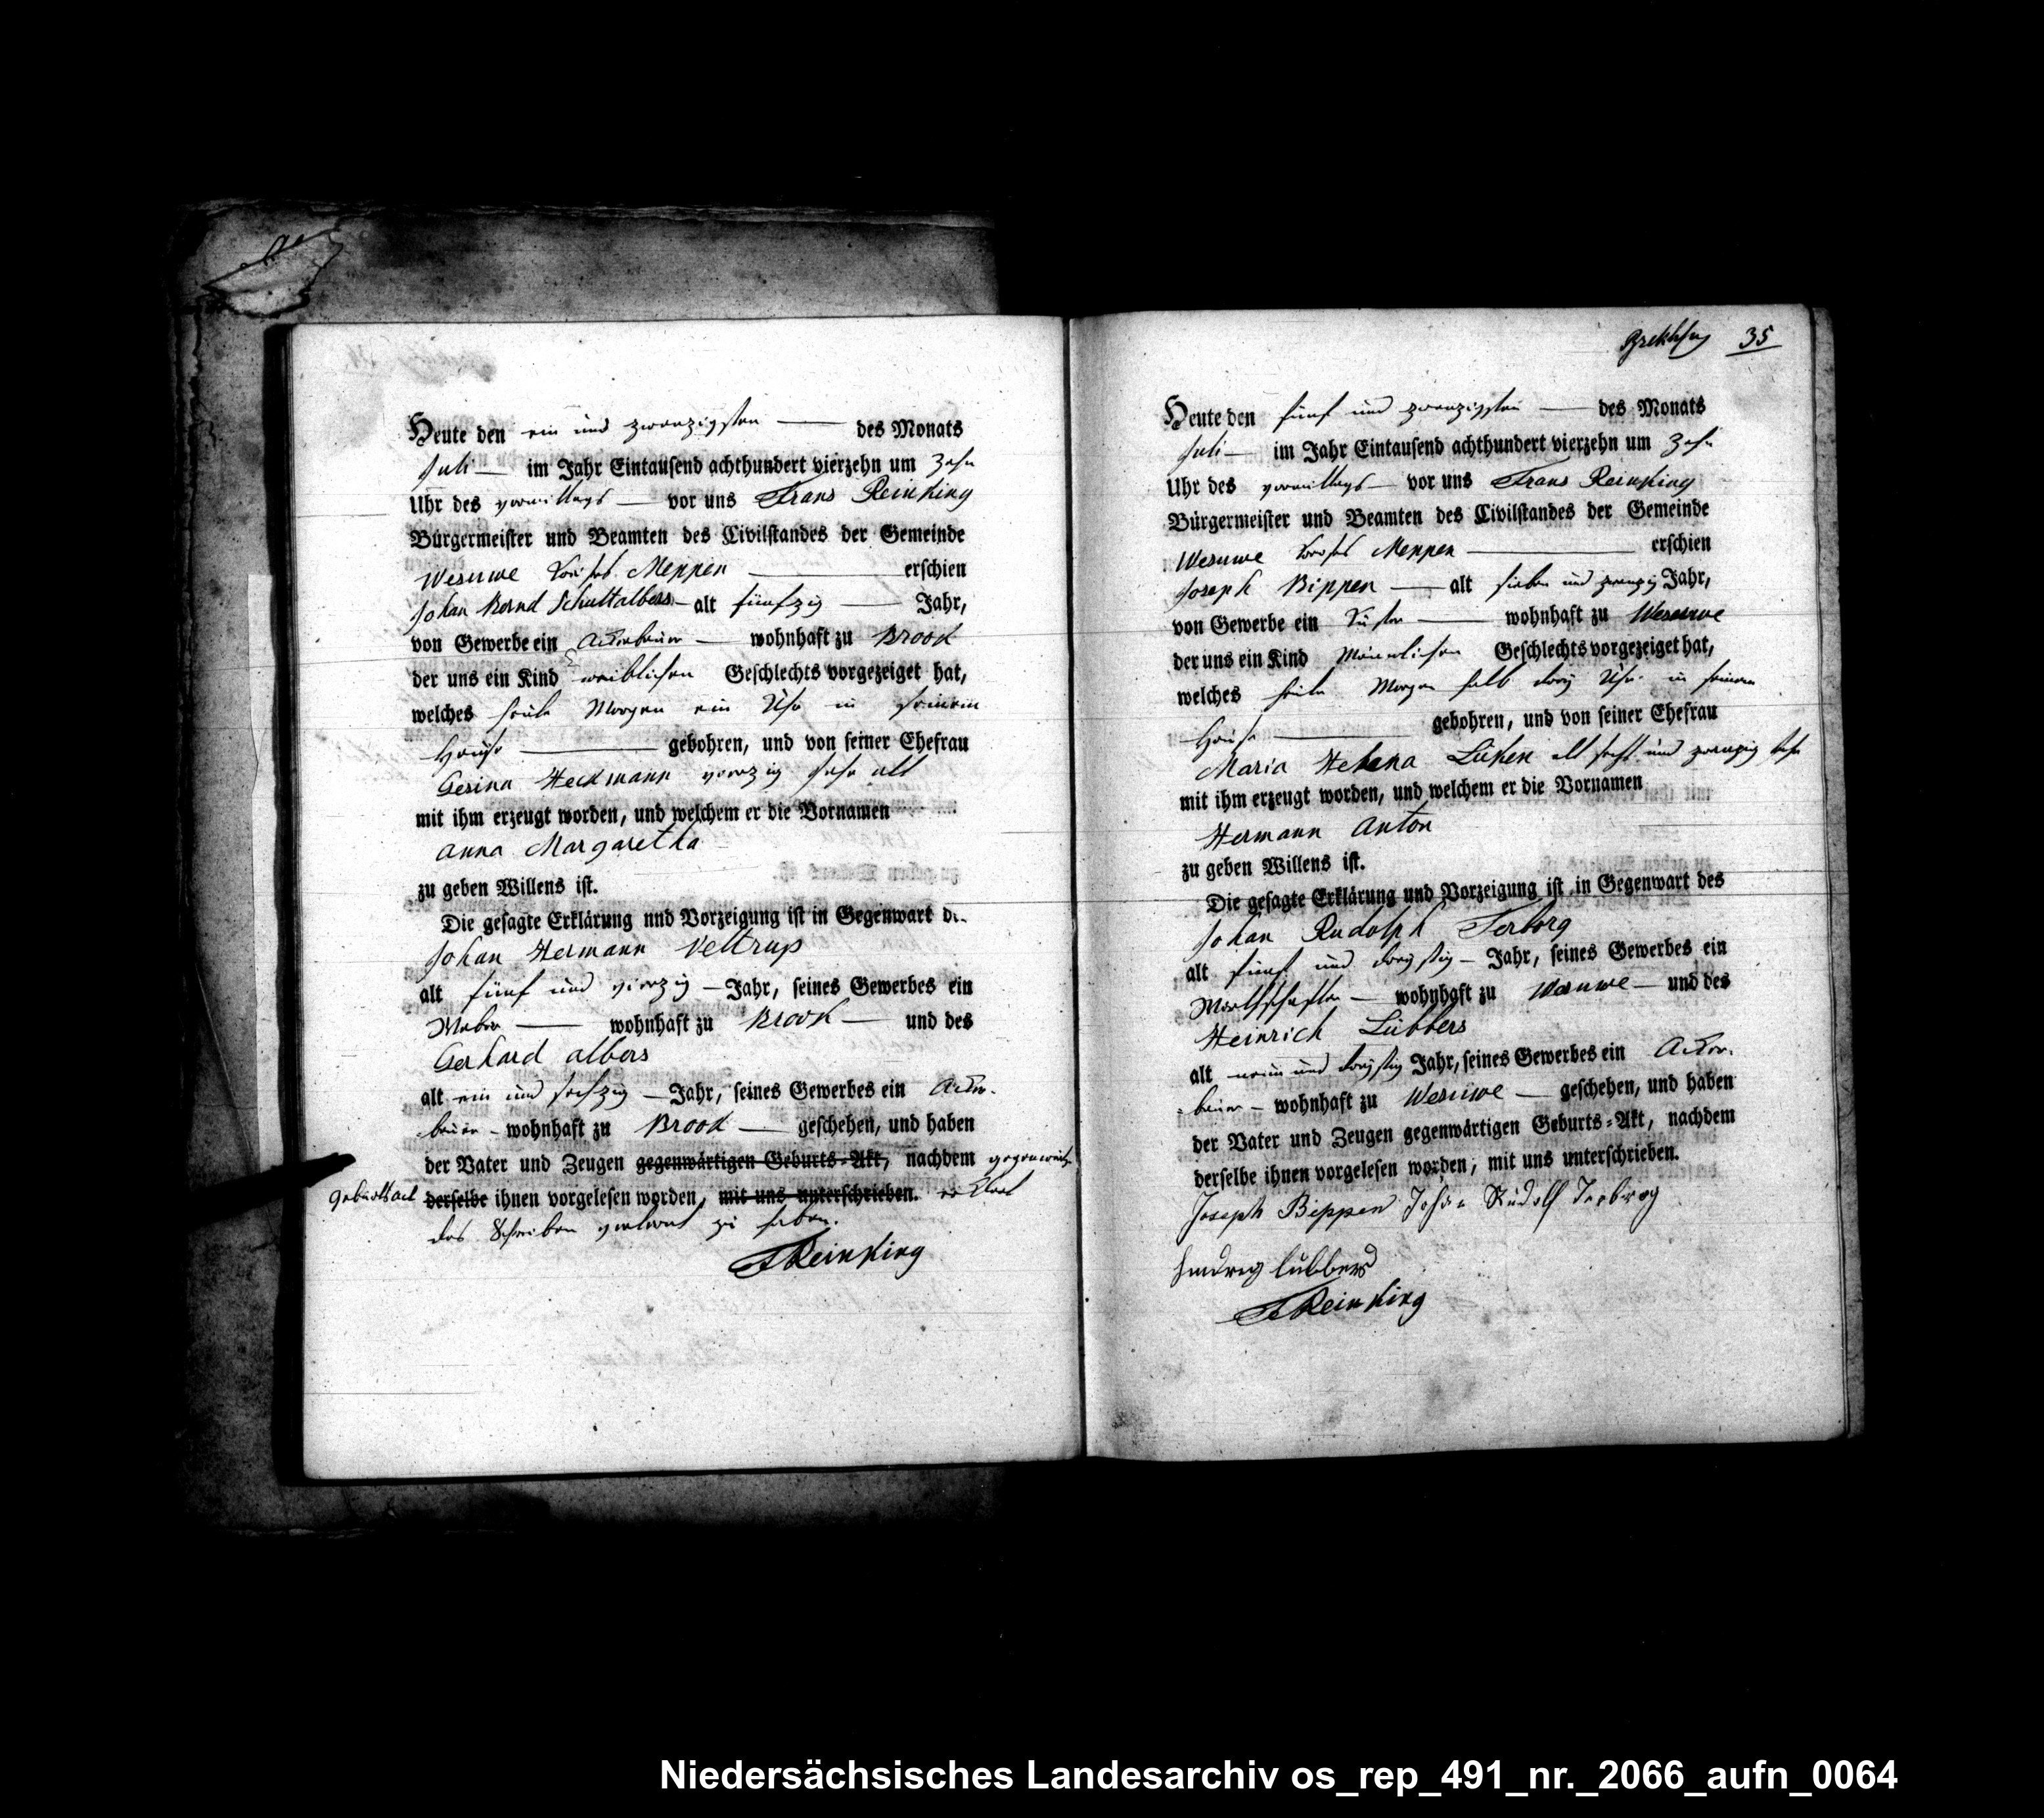 Heute den ein und zwanzigsten — des Monats
Juli — im Jahr Eintausend achthundert vierzehn um Zehn
Uhr des vormittags — vor uns Frans Reinking
Bürgermeister und Beamten des Civilstandes der Gemeinde
Wesuwe Meppen — erschien
Johan Bernd Schultalbers — alt fünfzig — Jahr,
von Gewerbe ein Ackerbauer — wohnhaft zu Brook
der uns ein Kind weiblichen Geschlechts vorgezeiget hat,
welches heute Morgen ein Uhr in seinem
Hause — gebohren, und von seiner Ehefrau
Gesina Heckmann vierzig Jahr alt
mit ihm erzeugt worden, und welchem er die Vornamen
Anna Margaretha
zu geben Willens ist.
Die gesagte Erklärung und Vorzeigung ist in Gegenwart de
Johan Hermann Veltrup
alt fünf und vierzig — Jahr, seines Gewerbes ein
Weber — wohnhaft zu Brook — und des
Gerhard Albers
alt ein und sechzig — Jahr, seines Gewerbes ein Acker-
bauer — wohnhaft zu Brook — geschehen, und haben
der Vater und Zeugen gegenwärtigen Geburts-Akt, nachdem gegenwärtig
Geburtsact derselbe ihnen vorgelesen worden, mit uns unterschrieben. erklärt
das Schreiben gelernt zu haben.
FReinking
35
Heute den fünf und zwanzigsten — des Monats
Juli — im Jahr Eintausend achthundert vierzehn um Zehn
Uhr des vormittags — vor uns Frans Reinking
Bürgermeister und Beamten des Civilstandes der Gemeinde
Wesuwe Meppen — erschien
Joseph Bippen — alt sieben und zwanzig Jahr,
von Gewerbe ein Küster — wohnhaft zu Wesuwe
der uns ein Kind Männlichen Geschlechts vorgezeiget hat,
welches heute Morgen halb drey Uhr in seinem
Hause — gebohren, und von seiner Ehefrau
Maria Helena Lüken alt sechs und zwanzig Jahr
mit ihm erzeugt worden, und welchem er die Vornamen
Hermann Anton
zu geben Willens ist.
Die gesagte Erklärung und Vorzeigung ist in Gegenwart des
Johan Rudolph Terborg
alt fünf und dreysig — Jahr, seines Gewerbes ein
wohnhaft zu Wesuwe — und des
Heinrich Lübbers
alt neun und dreysig Jahr, seines Gewerbes ein Acker-
bauer — wohnhaft zu Wesuwe — geschehen, und haben
der Vater und Zeugen gegenwärtigen Geburts-Akt, nachdem
derselbe ihnen vorgelesen worden, mit uns unterschrieben.
Joseph Bippen Johan Rudolf Terborg
Hindrig lübbers
FReinking
Niedersächsisches Landesarchiv os_rep_491_nr._2066_aufn_0064